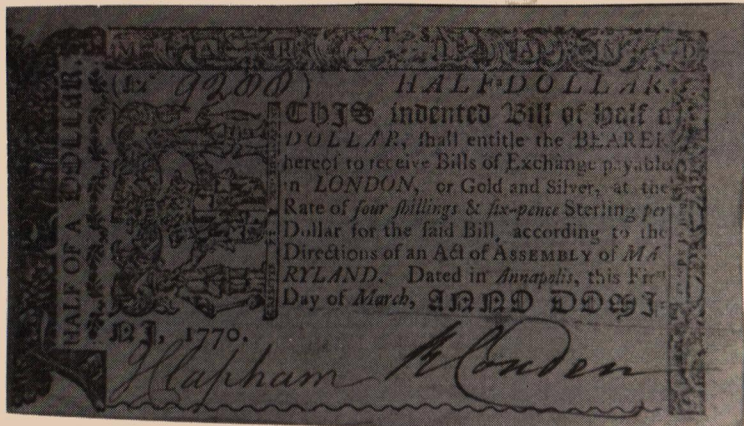 MARYLAND
HALF OF A DOLLAR.
(No 9200) HALF-DOLLAR.
THIS indented Bill of Half a
DOLLAR, ſhall entitle the BEARER
hereof to receive Bills of Exchange payable
in LONDON, or Gold and Silver, at the
Rate of four ſhillings & ſix-pence Sterling per
Dollar for the ſaid Bill, according to the
Directions of an Act of ASSEMBLY of MA
RYLAND. Dated in Annapolis, this Firſt
Day of March, ANNO DOMI-
NI, 1770.
J Clapham R Couden